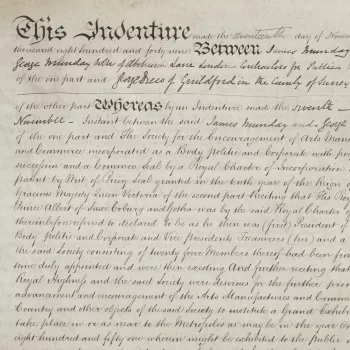 This Indenture made the seventeenth day of Novem
thousand eight hundred and forty nine Between James Munday
George Munday both of Lane London Contractors for Public
of the one part and George Drew of Guildford in the County of Surrey
of the other part Whereas by an Indenture made the seventh
November Instant between the said James Munday and George
of the one part and The Society for the Encouragement of Arts Manu
and Commerce incorporated as a Body politic and Corporate with per
succession and a Common Seal by a Royal Charter of Incorporation
patent by Writ of Privy Seal granted in the tenth year of the Reign of
Gracious Majesty Queen Victoria of the second part Reciting that His Roy
Prince Albert of Saxe Coburg and Gotha was by the said Royal Charter
thereinbefore referred to declared to be as he then was (first) President of
Body politic and Corporate and Vice Presidents Treasurers (two) and a
the said Society consisting of twenty four Members thereof had been from
time duly appointed and were then existing And further reciting that
Royal Highness and the said Society were desirous for the further prom
advancement and encouragement of the Arts Manufactures and Comme
Country and other objects of the said Society to institute a Grand Exhibi
take place in or as near to the Metropolis as may be in the year On
eight hundred and fifty one wherein might be exhibited to the Public